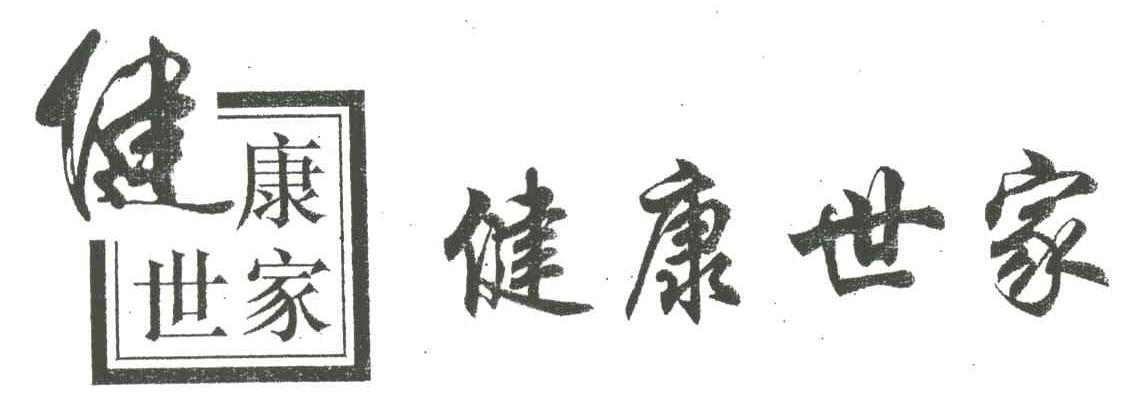 健康
世家
健康世家